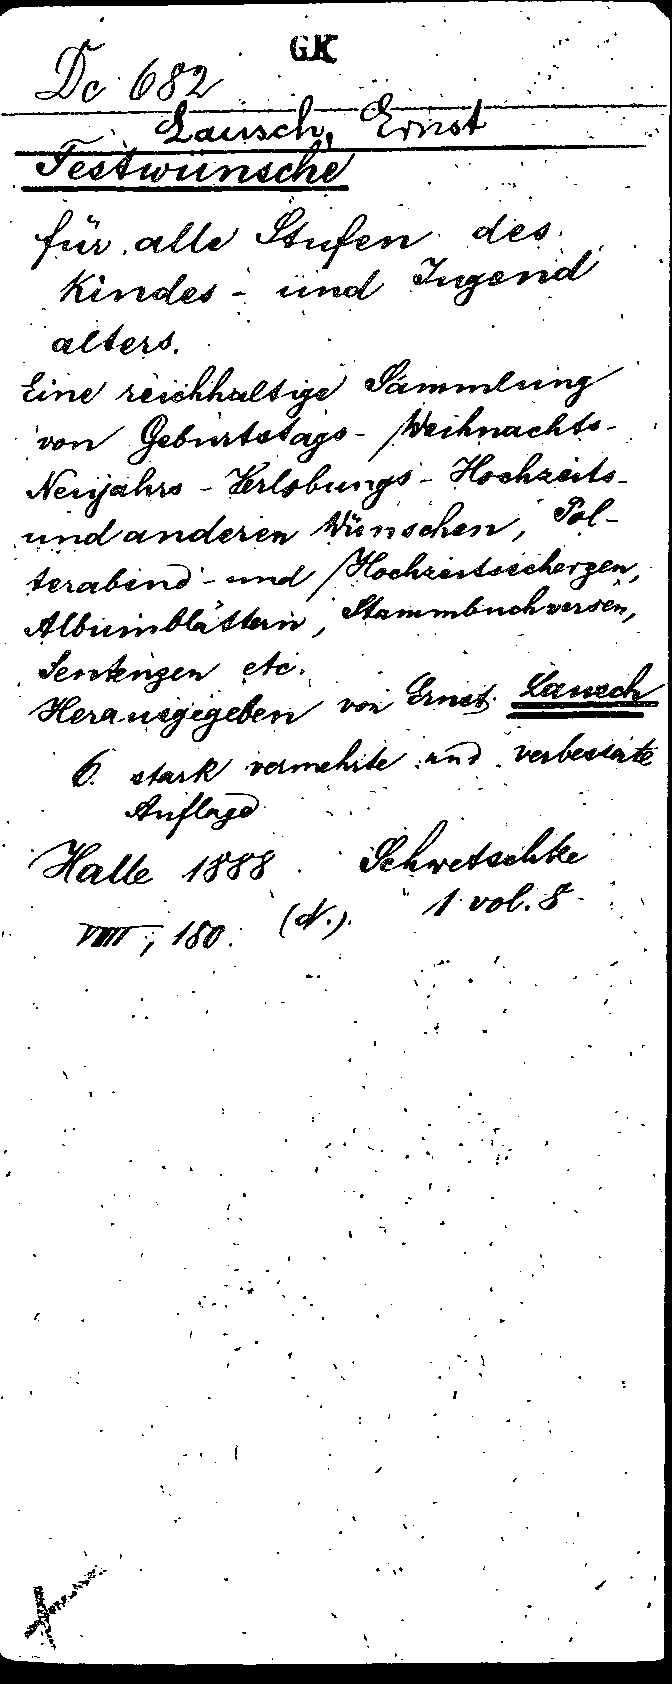 GK
Dc 682
Lausch, Ernst
Festwünsche
für alle Stufen des
Kindes- und Jugend
alters.
Eine reichhaltige Sammlung
von Geburtstags- Weihnachts-
Neujahrs- Verlobungs- Hochzeits-
und anderen Wünschen, Pol-
terabend- und Hochzeitsscherzen,
Albumblättern, Stammbuchversen,
Sentenzen etc.
Herausgegeben von Ernst Lausch
6. stark vermehrte und verbesserte
Auflage
Halle 1888 Schwetschke
1 vol. 8
VIII, 180. (N.).